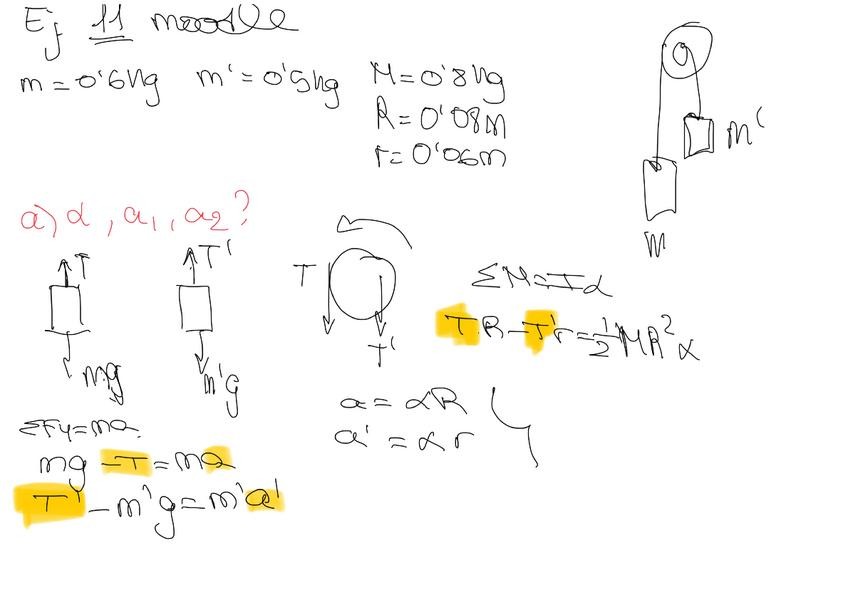 Ej 11 moodle
m = 0'6 Kg m' = 0'5 Kg M = 0'8 Kg
R = 0'08 m
r = 0'06 m
m'
m
a) α, a₁, a₂?
T T' T T'
mg m'g
ΣM = Iα
TR - T'r = 1/2 MR²α
a = αR
a' = αr
ΣFy = ma
mg - T = ma
T' - m'g = m'a'